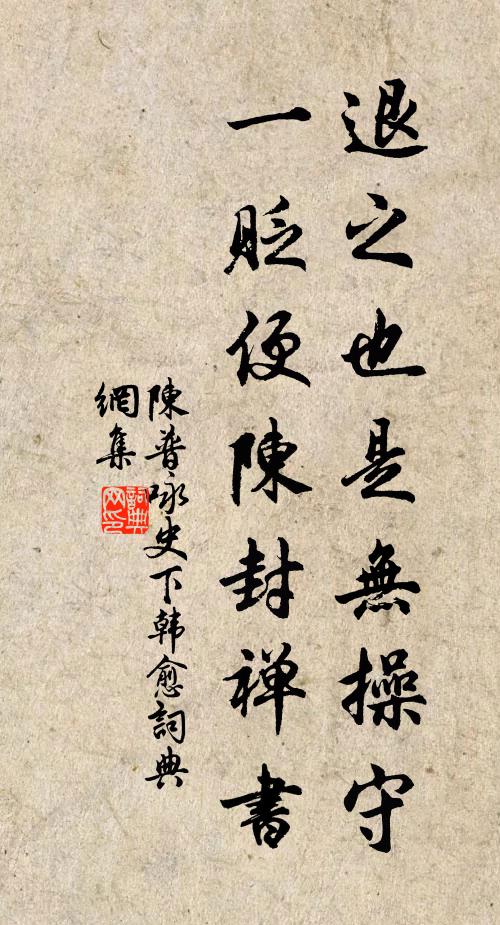 退之也是無操守
一貶便陳封禅書
陳普咏史下韩愈詞典
網集
詞典
网印